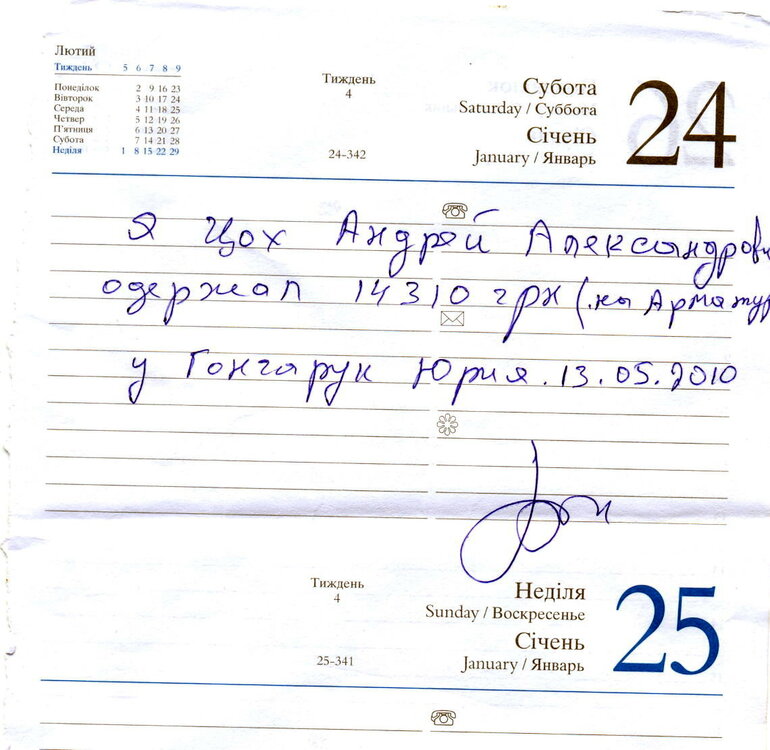 Лютий
Тиждень 5 6 7 8 9
Понеділок 2 9 16 23
Вівторок 3 10 17 24
Середа 4 11 18 25
Четвер 5 12 19 26
П'ятниця 6 13 20 27
Субота 7 14 21 28
Неділя 1 8 15 22 29
Тиждень
4
24-342
Субота
Saturday / Суббота
Січень
January / Январь
24
Я Цох Андрей Александрови
одержал 14310 грн (на Арматур
у Гончарук Юрия. 13.05.2010
Тиждень
4
25-341
Неділя
Sunday / Воскресенье
Січень
January / Январь
25